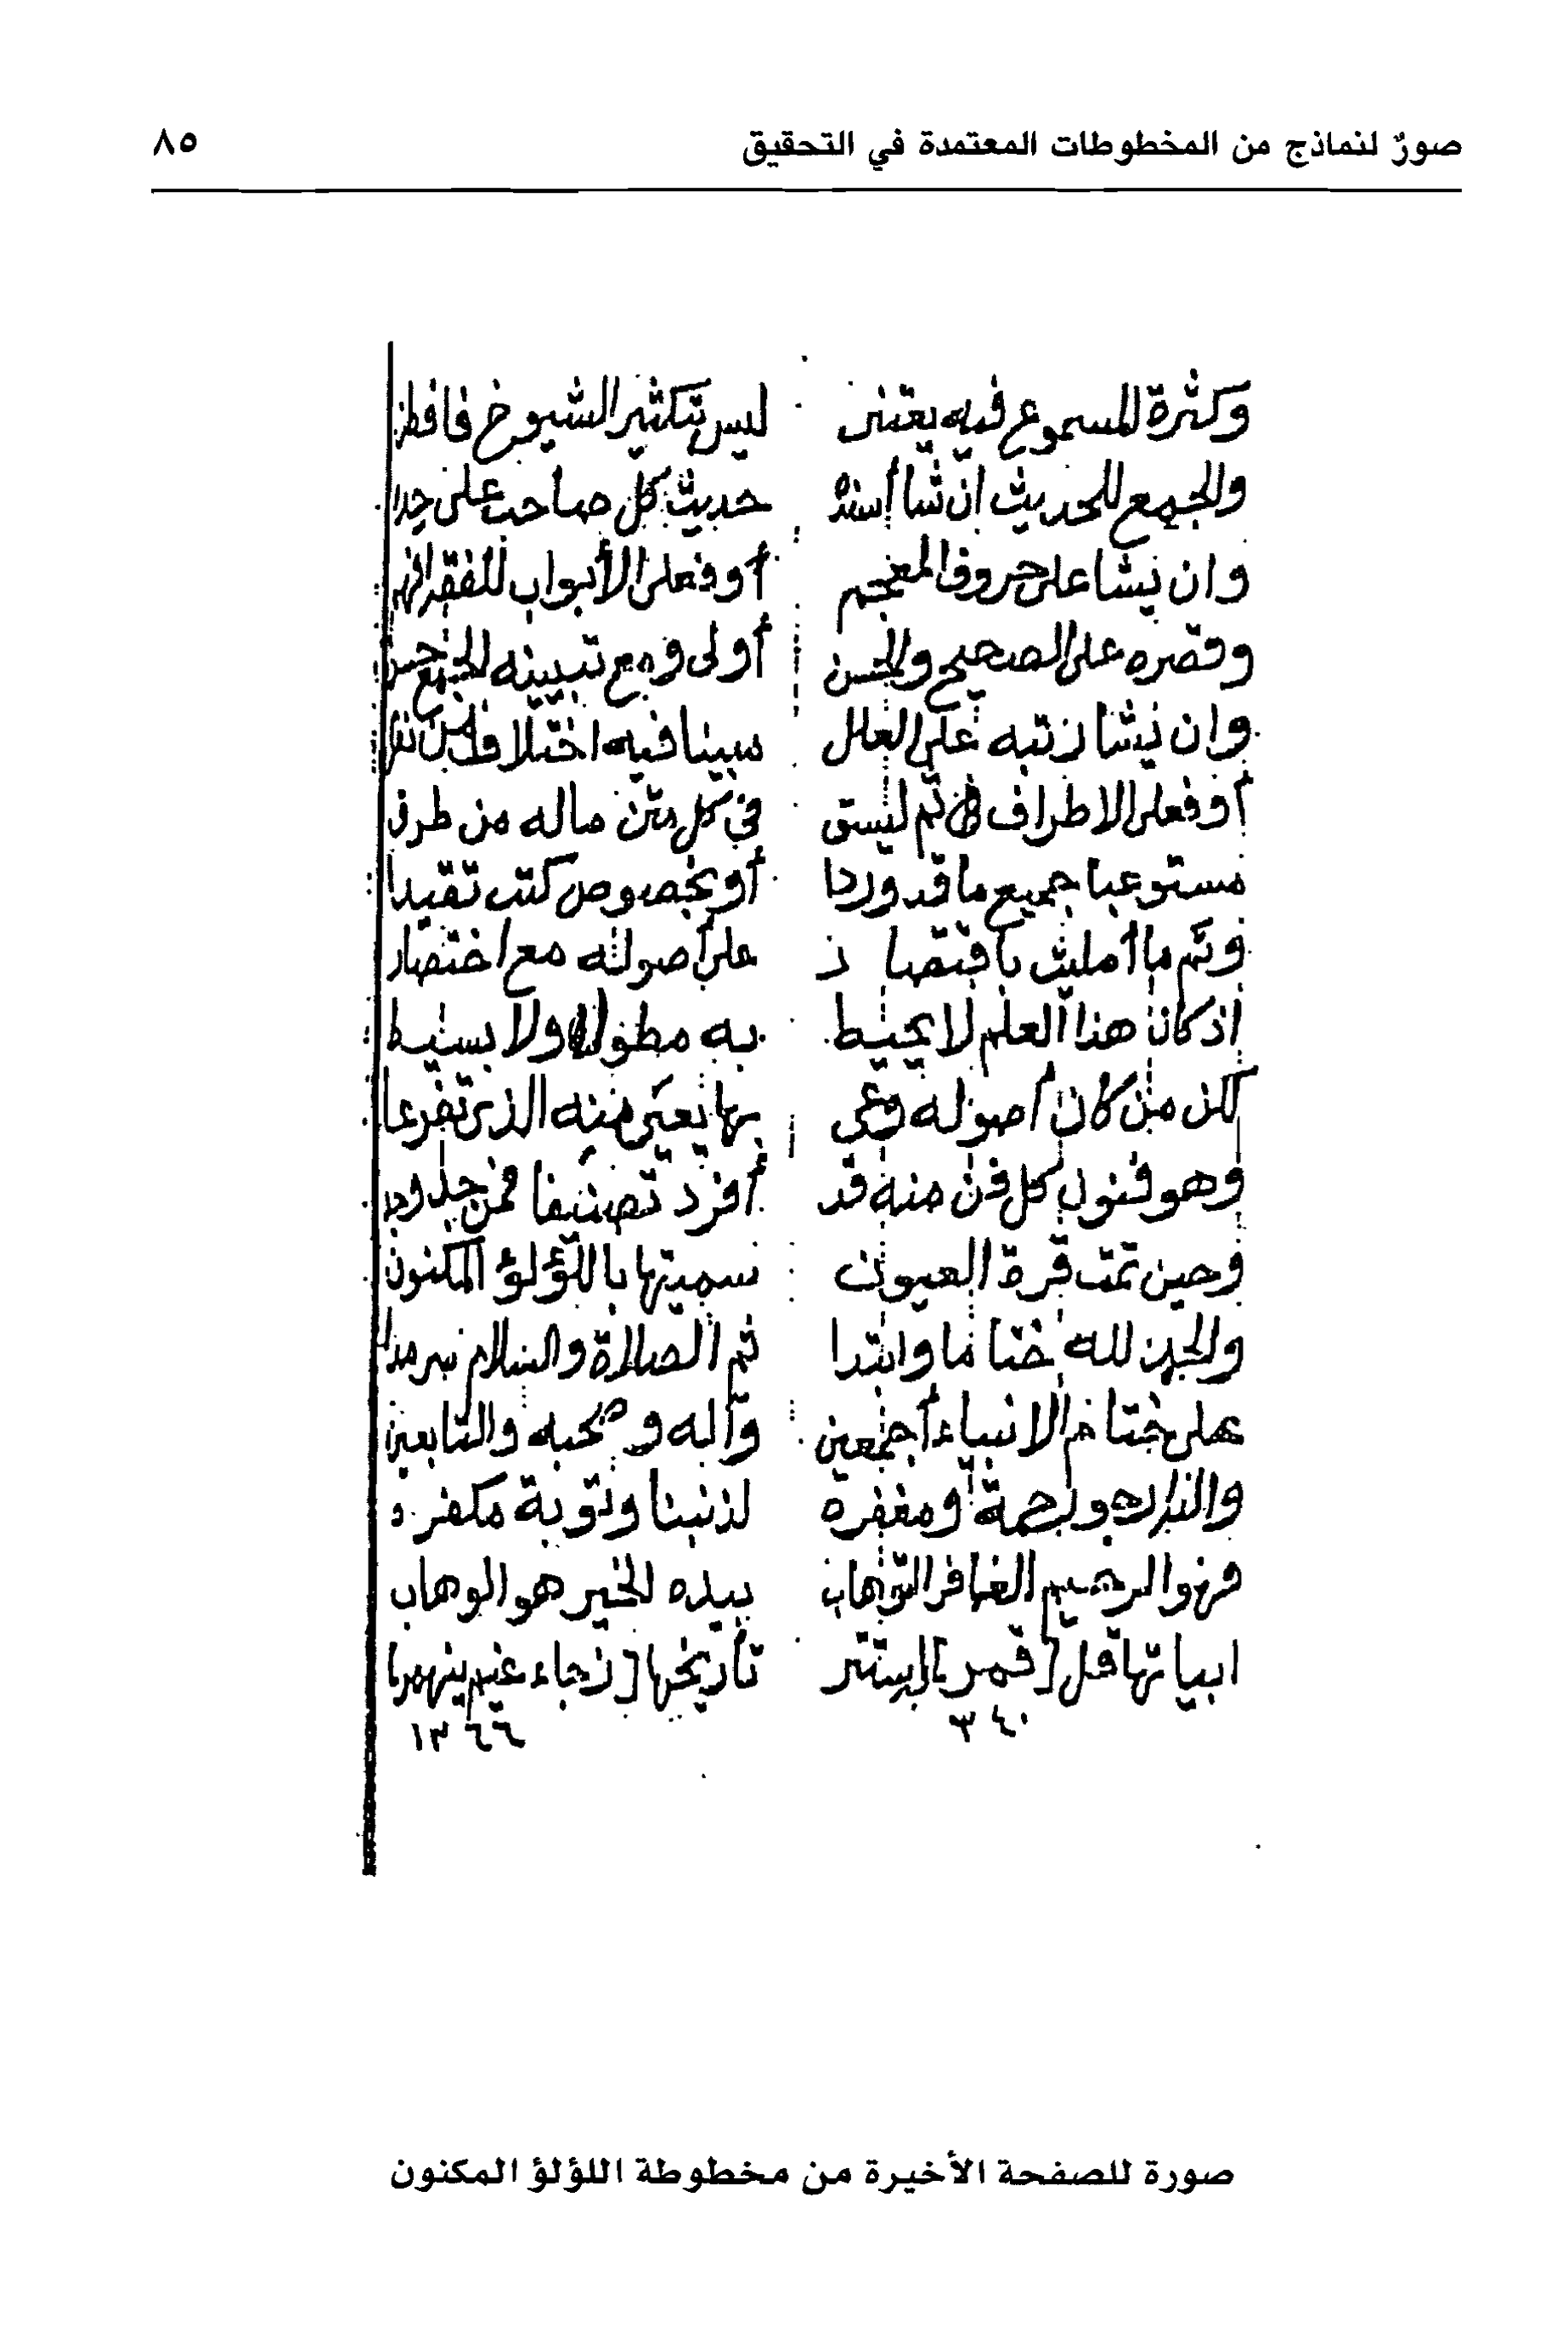 صورٌ لنماذج من المخطوطات المعتمدة في التحقيق ٨٥
وكثرة المسموع فيه يعتنى ليس بتكثير الشيوخ فافطن
والجمع للحديث ان شا أسنده حديث كل صاحب على حدا
وان يشا على حروف المعجم أو فعلى الأبواب للفقه
وقصره على الصحيح والحسن أولى ومع تبيينه الجميع حسن
وان يشا رتبه على العلل مبينا فيه اختلاف من نقل
أو فعلى الاطراف ثم ليسق في كل متن ماله من طرق
مستوعبا جميع ما قد وردا أو بخصوص كتب تقيدا
وتم ما أمليت باقتصار على أصوله مع اختصار
اذ كان هذا العلم لا يحيط به مطول ولا بسيط
لكن من كان أصوله وعى بها يعي منه الذي تفرعا
وهو فنون كل فن منه قد أفرد تصنيفا فمن جد وجد
وحين تمت قرة العيون سميتها باللؤلؤ المكنون
والحمد لله ختاما وابتدا ثم الصلاة والسلام سرمدا
على ختام الانبياء أجمعين وآله وصحبه والتابعين
والله ارجو رحمة ومغفرة لذنبنا وتوبة مكفرة
فهو الرحيم الغافر التواب بيده الخير هو الوهاب
ابياتها قل [قمر] استتر تأريخها
٣٤٠ ١٣٦٦
صورة للصفحة الأخيرة من مخطوطة اللؤلؤ المكنون